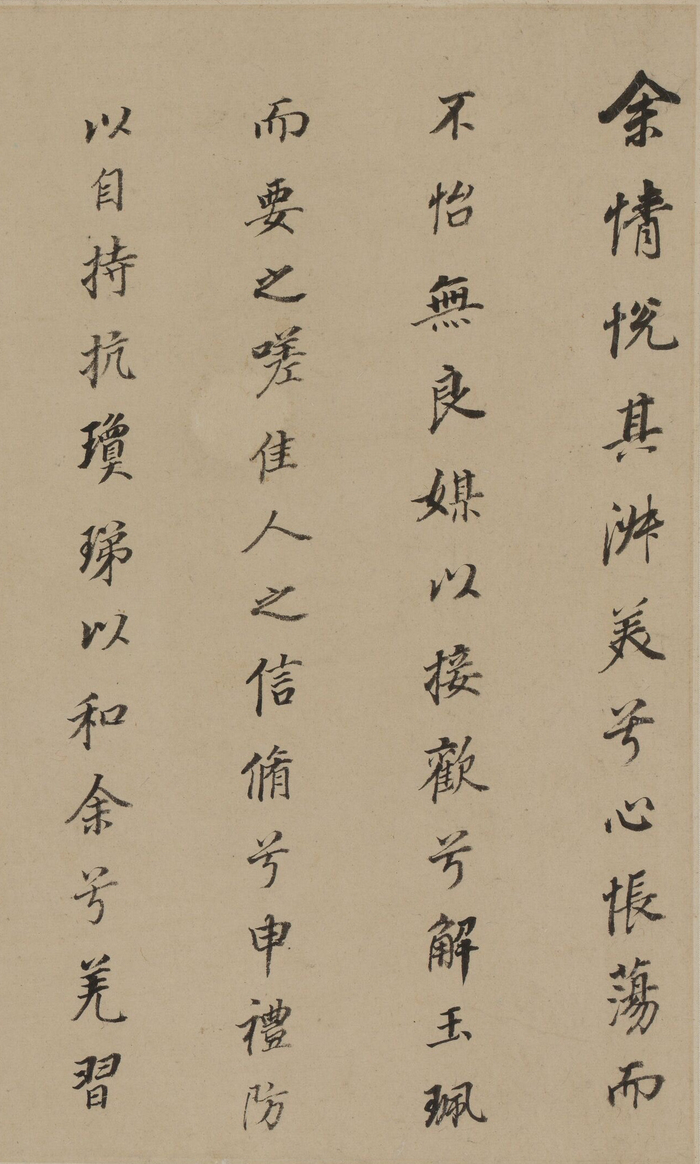 余情悅其淑美兮心悵蕩而
不怡無良媒以接歡兮解玉珮
而要之嗟佳人之信脩兮申禮防
以自持抗瓊珶以和余兮羌習